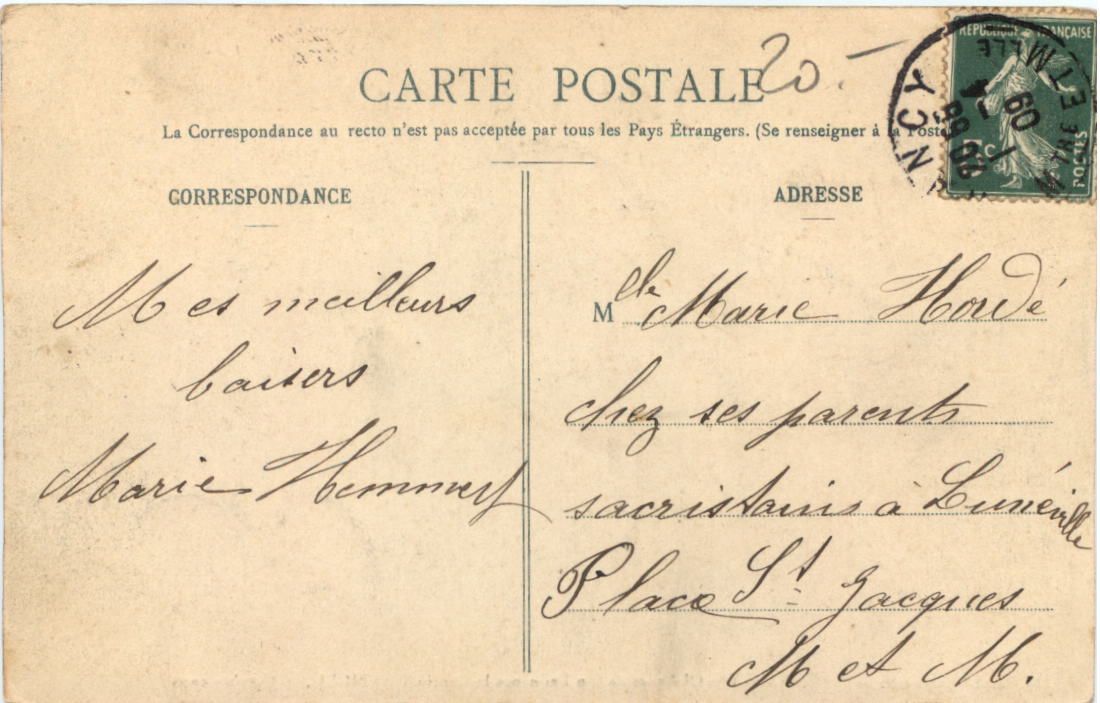 CARTE POSTALE
20.-
La Correspondance au recto n'est pas acceptée par tous les Pays Étrangers. (Se renseigner à la Poste
CORRESPONDANCE
ADRESSE
RÉPUBLIQUE FRANÇAISE
POSTES
NCY
MTHE ET MLLE
09
Mes meilleurs
baisers
Marie Hemmert
Mlle Marie Houdé
chez ses parents
sacristains à Lunéville
Place St Jacques
M et M.